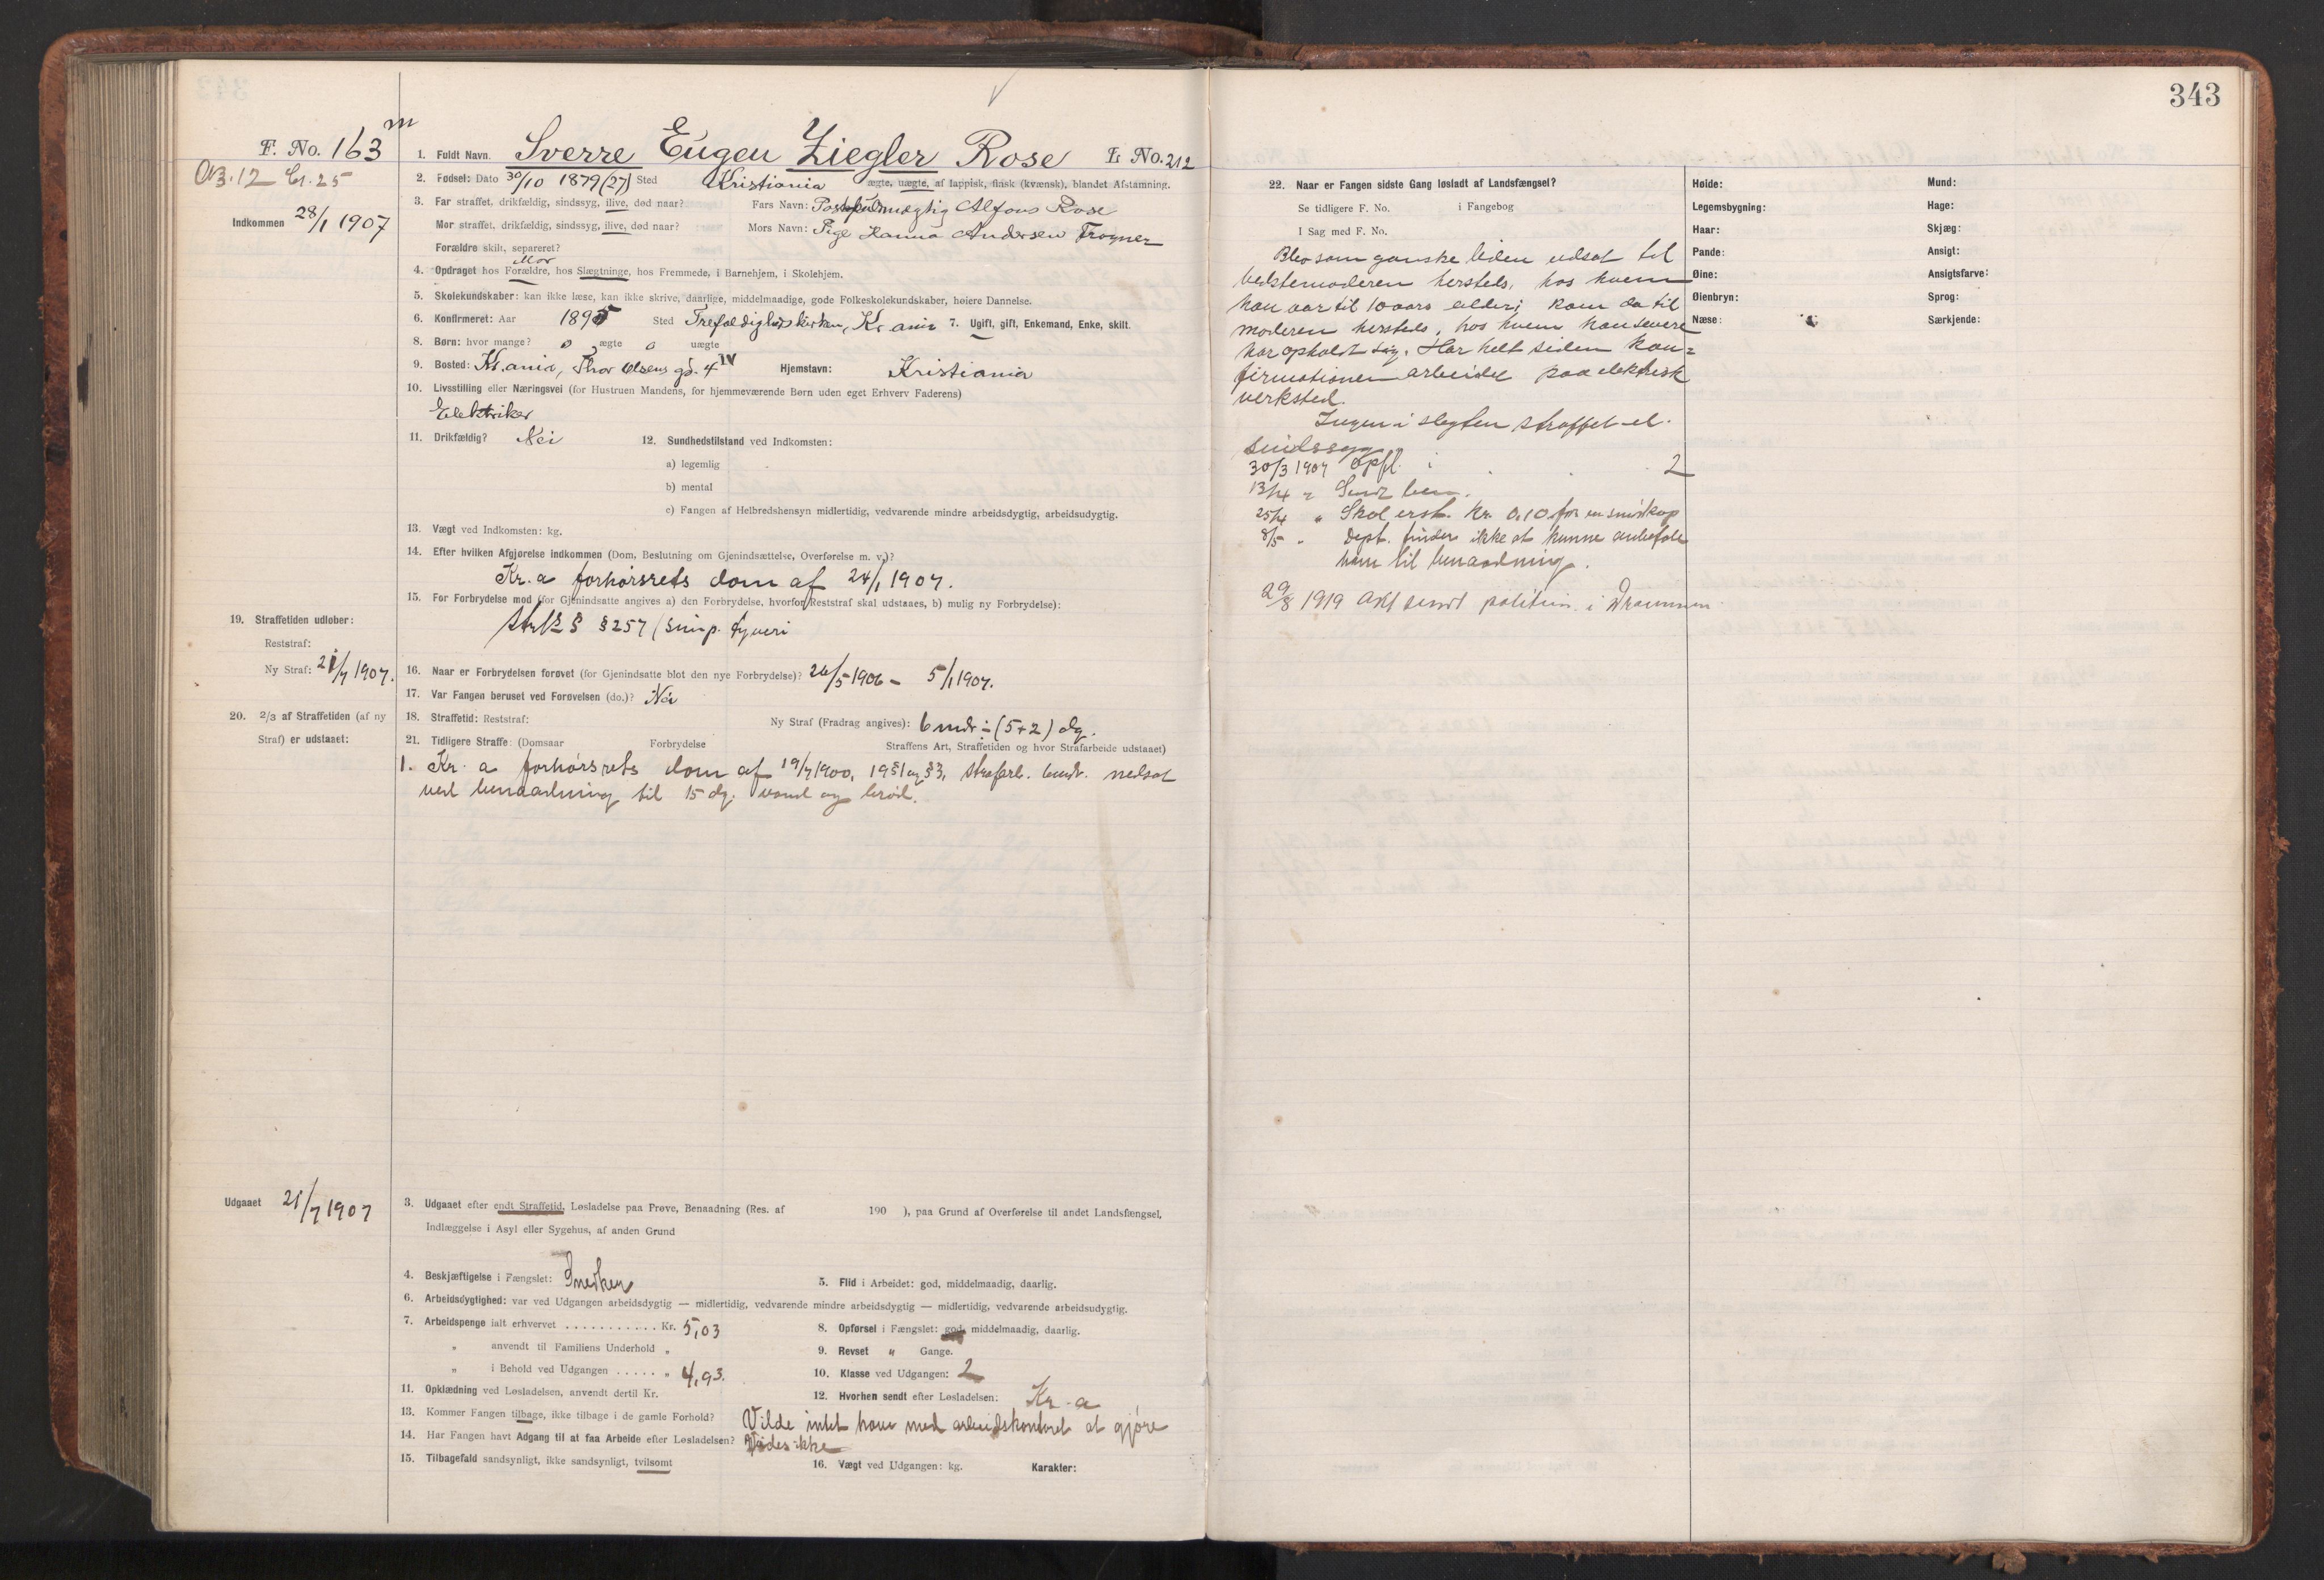 343
F. No. 163 m
AB. 12 Cl. 25
Indkommen 28/1 1907
1. Fuldt Navn. Sverre Eugen Ziegler Rose L No. 212
2. Fødsel: Dato 30/10 1879 (27) Sted Kristiania ægte, uægte, af lappisk, finsk (kvænsk), blandet Afstamning.
3. Far straffet, drikfældig, sindssyg, ilive, død naar? Fars Navn: Postfuldmægtig Alfons Rose
Mor straffet, drikfældig, sindssyg, ilive, død naar? Mors Navn: Pige Hanna Andersen Frogner
Forældre skilt, separeret?
Mor
4. Opdraget hos Forældre, hos Slægtninge, hos Fremmede, i Barnehjem, i Skolehjem.
5. Skolekundskaber: kan ikke læse, kan ikke skrive, daarlige, middelmaadige, gode Folkeskolekundskaber, høiere Dannelse.
6. Konfirmeret: Aar 1895 Sted Trefoldighedskirken, Kr.ania 7. Ugift, gift, Enkemand, Enke, skilt.
8. Børn: hvor mange? 0 ægte 0 uægte
9. Bosted: Kr.ania, Thor Olsens gd. 4 IV Hjemstavn: Kristiania
10. Livsstilling eller Næringsvei (for Hustruen Mandens, for hjemmeværende Børn uden eget Erhverv Faderens)
Elektriker
11. Drikfældig? Nei 12. Sundhedstilstand ved Indkomsten:
a) legemlig
b) mental
c) Fangen af Helbredshensyn midlertidig, vedvarende mindre arbeidsdygtig, arbeidsudygtig.
13. Vægt ved Indkomsten: kg.
14. Efter hvilken Afgjørelse indkommen (Dom, Beslutning om Gjenindsættelse, Overførelse m. v.)?
Kr.a forhørsrets dom af 24/1 1907.
15. For Forbrydelse mod (for Gjenindsatte angives a) den Forbrydelse, hvorfor Reststraf skal udstaaes, b) mulig ny Forbrydelse):
§ 257 (simp. tyveri
19. Straffetiden udløber:
Reststraf:
Ny Straf: 21/7 1907.
16. Naar er Forbrydelsen forøvet (for Gjenindsatte blot den nye Forbrydelse)? 26/5 1906 – 5/1 1907.
17. Var Fangen beruset ved Forøvelsen (do.)? Nei
18. Straffetid: Reststraf: Ny Straf (Fradrag angives): 6 mdr ÷ (5+2) dg.
20. 2/3 af Straffetiden (af ny
Straf) er udstaaet:
21. Tidligere Straffe: (Domsaar Forbrydelse Straffens Art, Straffetiden og hvor Strafarbeide udstaaet)
1. Kr.a forhørsrets dom af 19/7 1900, 19 § 1 og § 3, strafarb. 6 mdr. nedsat
ved benaadning til 15 dg. vand og brød.
Udgaaet 21/7 1907
3. Udgaaet efter endt Straffetid, Løsladelse paa Prøve, Benaadning (Res. af 190 ), paa Grund af Overførelse til andet Landsfængsel,
Indlæggelse i Asyl eller Sygehus, af anden Grund
4. Beskjæftigelse i Fængslet: Snedker 5. Flid i Arbeidet: god, middelmaadig, daarlig.
6. Arbeidsdygtighed: var ved Udgangen arbeidsdygtig — midlertidig, vedvarende mindre arbeidsdygtig — midlertidig, vedvarende arbeidsudygtig.
7. Arbeidspenge ialt erhvervet . . . . . . . . . . . Kr. 5,03 8. Opførsel i Fængslet: god, middelmaadig, daarlig.
„ anvendt til Familiens Underhold „ 9. Revset „ Gange.
„ i Behold ved Udgangen . . . . . „ 4,93. 10. Klasse ved Udgangen: 2
11. Opklædning ved Løsladelsen, anvendt dertil Kr. 12. Hvorhen sendt efter Løsladelsen: Kr.a
13. Kommer Fangen tilbage, ikke tilbage i de gamle Forhold? Vilde intet have med arbeidskontoret at gjøre
14. Har Fangen havt Adgang til at faa Arbeide efter Løsladelsen? Vides ikke
15. Tilbagefald sandsynligt, ikke sandsynligt, tvilsomt 16. Vægt ved Udgangen: kg. Karakter:
22. Naar er Fangen sidste Gang løsladt af Landsfængsel?
Se tidligere F. No. i Fangebog
I Sag med F. No.
Blev som ganske liden udsat til
bedstemoderen hersteds, hos hvem
han var til 10 aars alder; kom da til
moderen hersteds, hos hvem han senere
har opholdt sig. Har helt siden kon=
firmationen arbeidet paa elektrisk
verksted.
Ingen i slegten straffet el.
sindssyg
30/3 1907 Opfl. i 2
13/4 " Sendt ben.
25/4 " Skal erst. Kr. 0.10 for en snidkop
8/5 " Dept. finder ikke at kunne anbefale
ham til benaadning.
29/8 1919 Akt sendt politim. i Drammen.
Høide: Mund:
Legemsbygning: Hage:
Haar: Skjæg:
Pande: Ansigt:
Øine: Ansigtsfarve:
Øienbryn: Sprog:
Næse: Særkjende: